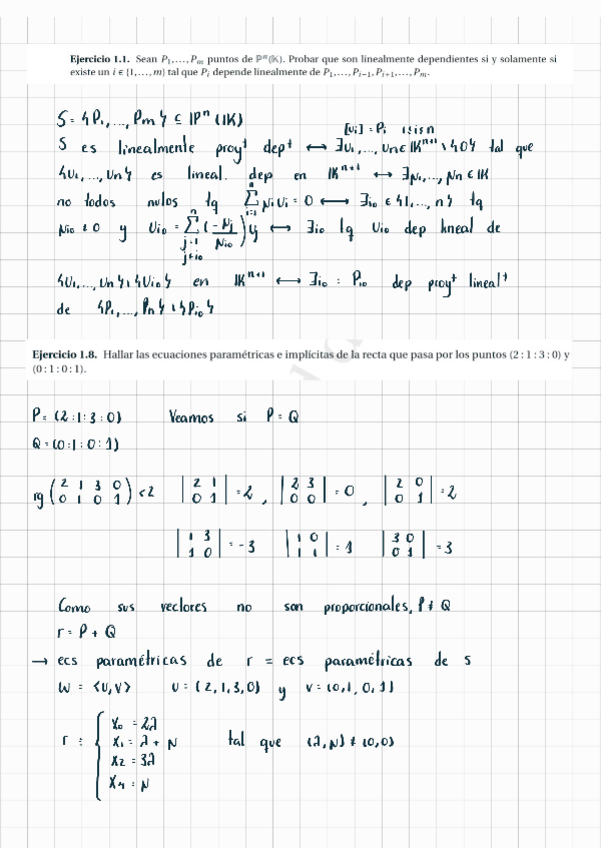 Ejercicio 1.1. Sean P₁,…,Pₘ puntos de ℙⁿ(𝕂). Probar que son linealmente dependientes si y solamente si
existe un i ∈ {1,…,m} tal que Pᵢ depende linealmente de P₁,…,Pᵢ₋₁,Pᵢ₊₁,…,Pₘ.
S = {P₁,…,Pm} ⊆ ℙⁿ(𝕂)
[vi] = Pi 1≤i≤n
S es linealmente proyᵗ depᵗ ↔ ∃v₁,…,vn ∈ 𝕂ⁿ⁺¹ \ {0} tal que
{v₁,…,vn} es lineal. dep en 𝕂ⁿ⁺¹ ↔ ∃μ₁,…,μn ∈ 𝕂
no todos nulos tq ∑ μi vi = 0 ⟷ ∃i₀ ∈ {1,…,n} tq
μi₀ ≠ 0 y vi₀ = ∑ (-μj/μi₀) vj ⟷ ∃i₀ tq vi₀ dep lineal de
{v₁,…,vn} \ {vi₀} en 𝕂ⁿ⁺¹ ⟷ ∃i₀ : Pi₀ dep proyᵗ linealᵗ
de {P₁,…,Pn} \ {Pi₀}
Ejercicio 1.8. Hallar las ecuaciones paramétricas e implícitas de la recta que pasa por los puntos (2 : 1 : 3 : 0) y
(0 : 1 : 0 : 1).
P = (2:1:3:0) Veamos si P = Q
Q = (0:1:0:1)
rg (2 1 3 0 / 0 1 0 1) < 2 |2 1 / 0 1| = 2, |2 3 / 0 0| = 0, |2 0 / 0 1| = 2
|1 3 / 1 0| = -3 |1 0 / 1 1| = 1 |3 0 / 0 1| = 3
Como sus vectores no son proporcionales, P ≠ Q
r = P + Q
→ ecs paramétricas de r = ecs paramétricas de s
W = <U,V> U = (2,1,3,0) y V = (0,1,0,1)
r ≡ { X₀ = 2λ
X₁ = λ + μ tal que (λ,μ) ≠ (0,0)
X₂ = 3λ
X₄ = μ